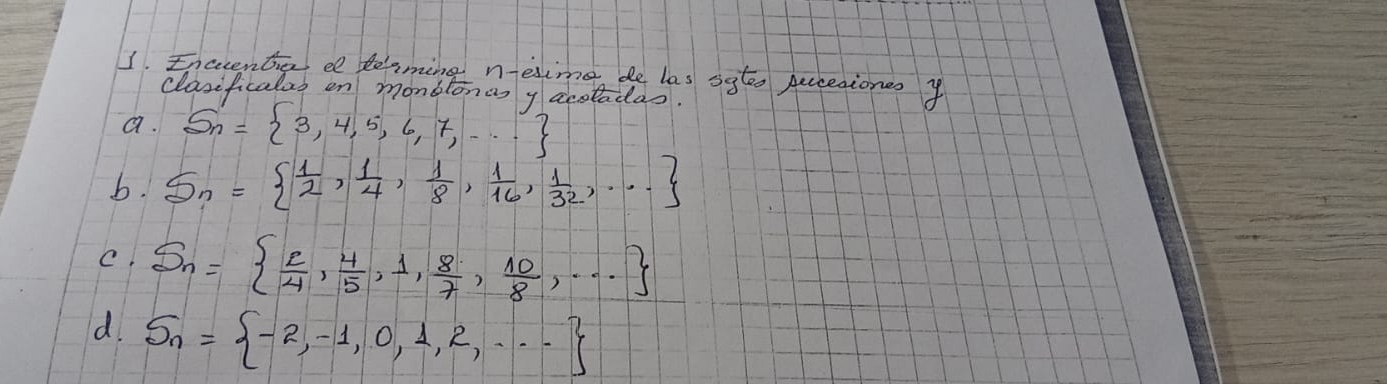 1. Encuentra el término n-ésimo de las sgtes sucesiones y
clasificalas en monótonas y acotadas.
a. Sn = {3, 4, 5, 6, 7, ...}
b. Sn = {1/2, 1/4, 1/8, 1/16, 1/32, ...}
c. Sn = {2/4, 4/5, 1, 8/7, 10/8, ...}
d. Sn = {-2, -1, 0, 1, 2, ...}